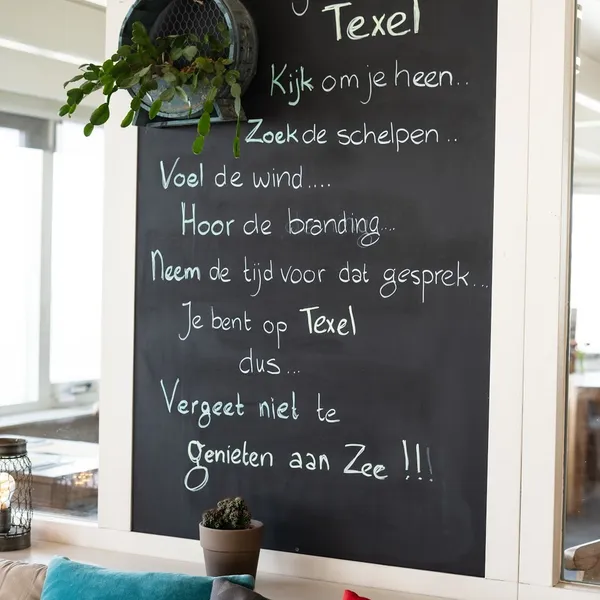 Texel
Kijk om je heen..
Zoek de schelpen..
Voel de wind....
Hoor de branding...
Neem de tijd voor dat gesprek...
Je bent op Texel
dus...
Vergeet niet te
genieten aan Zee !!!